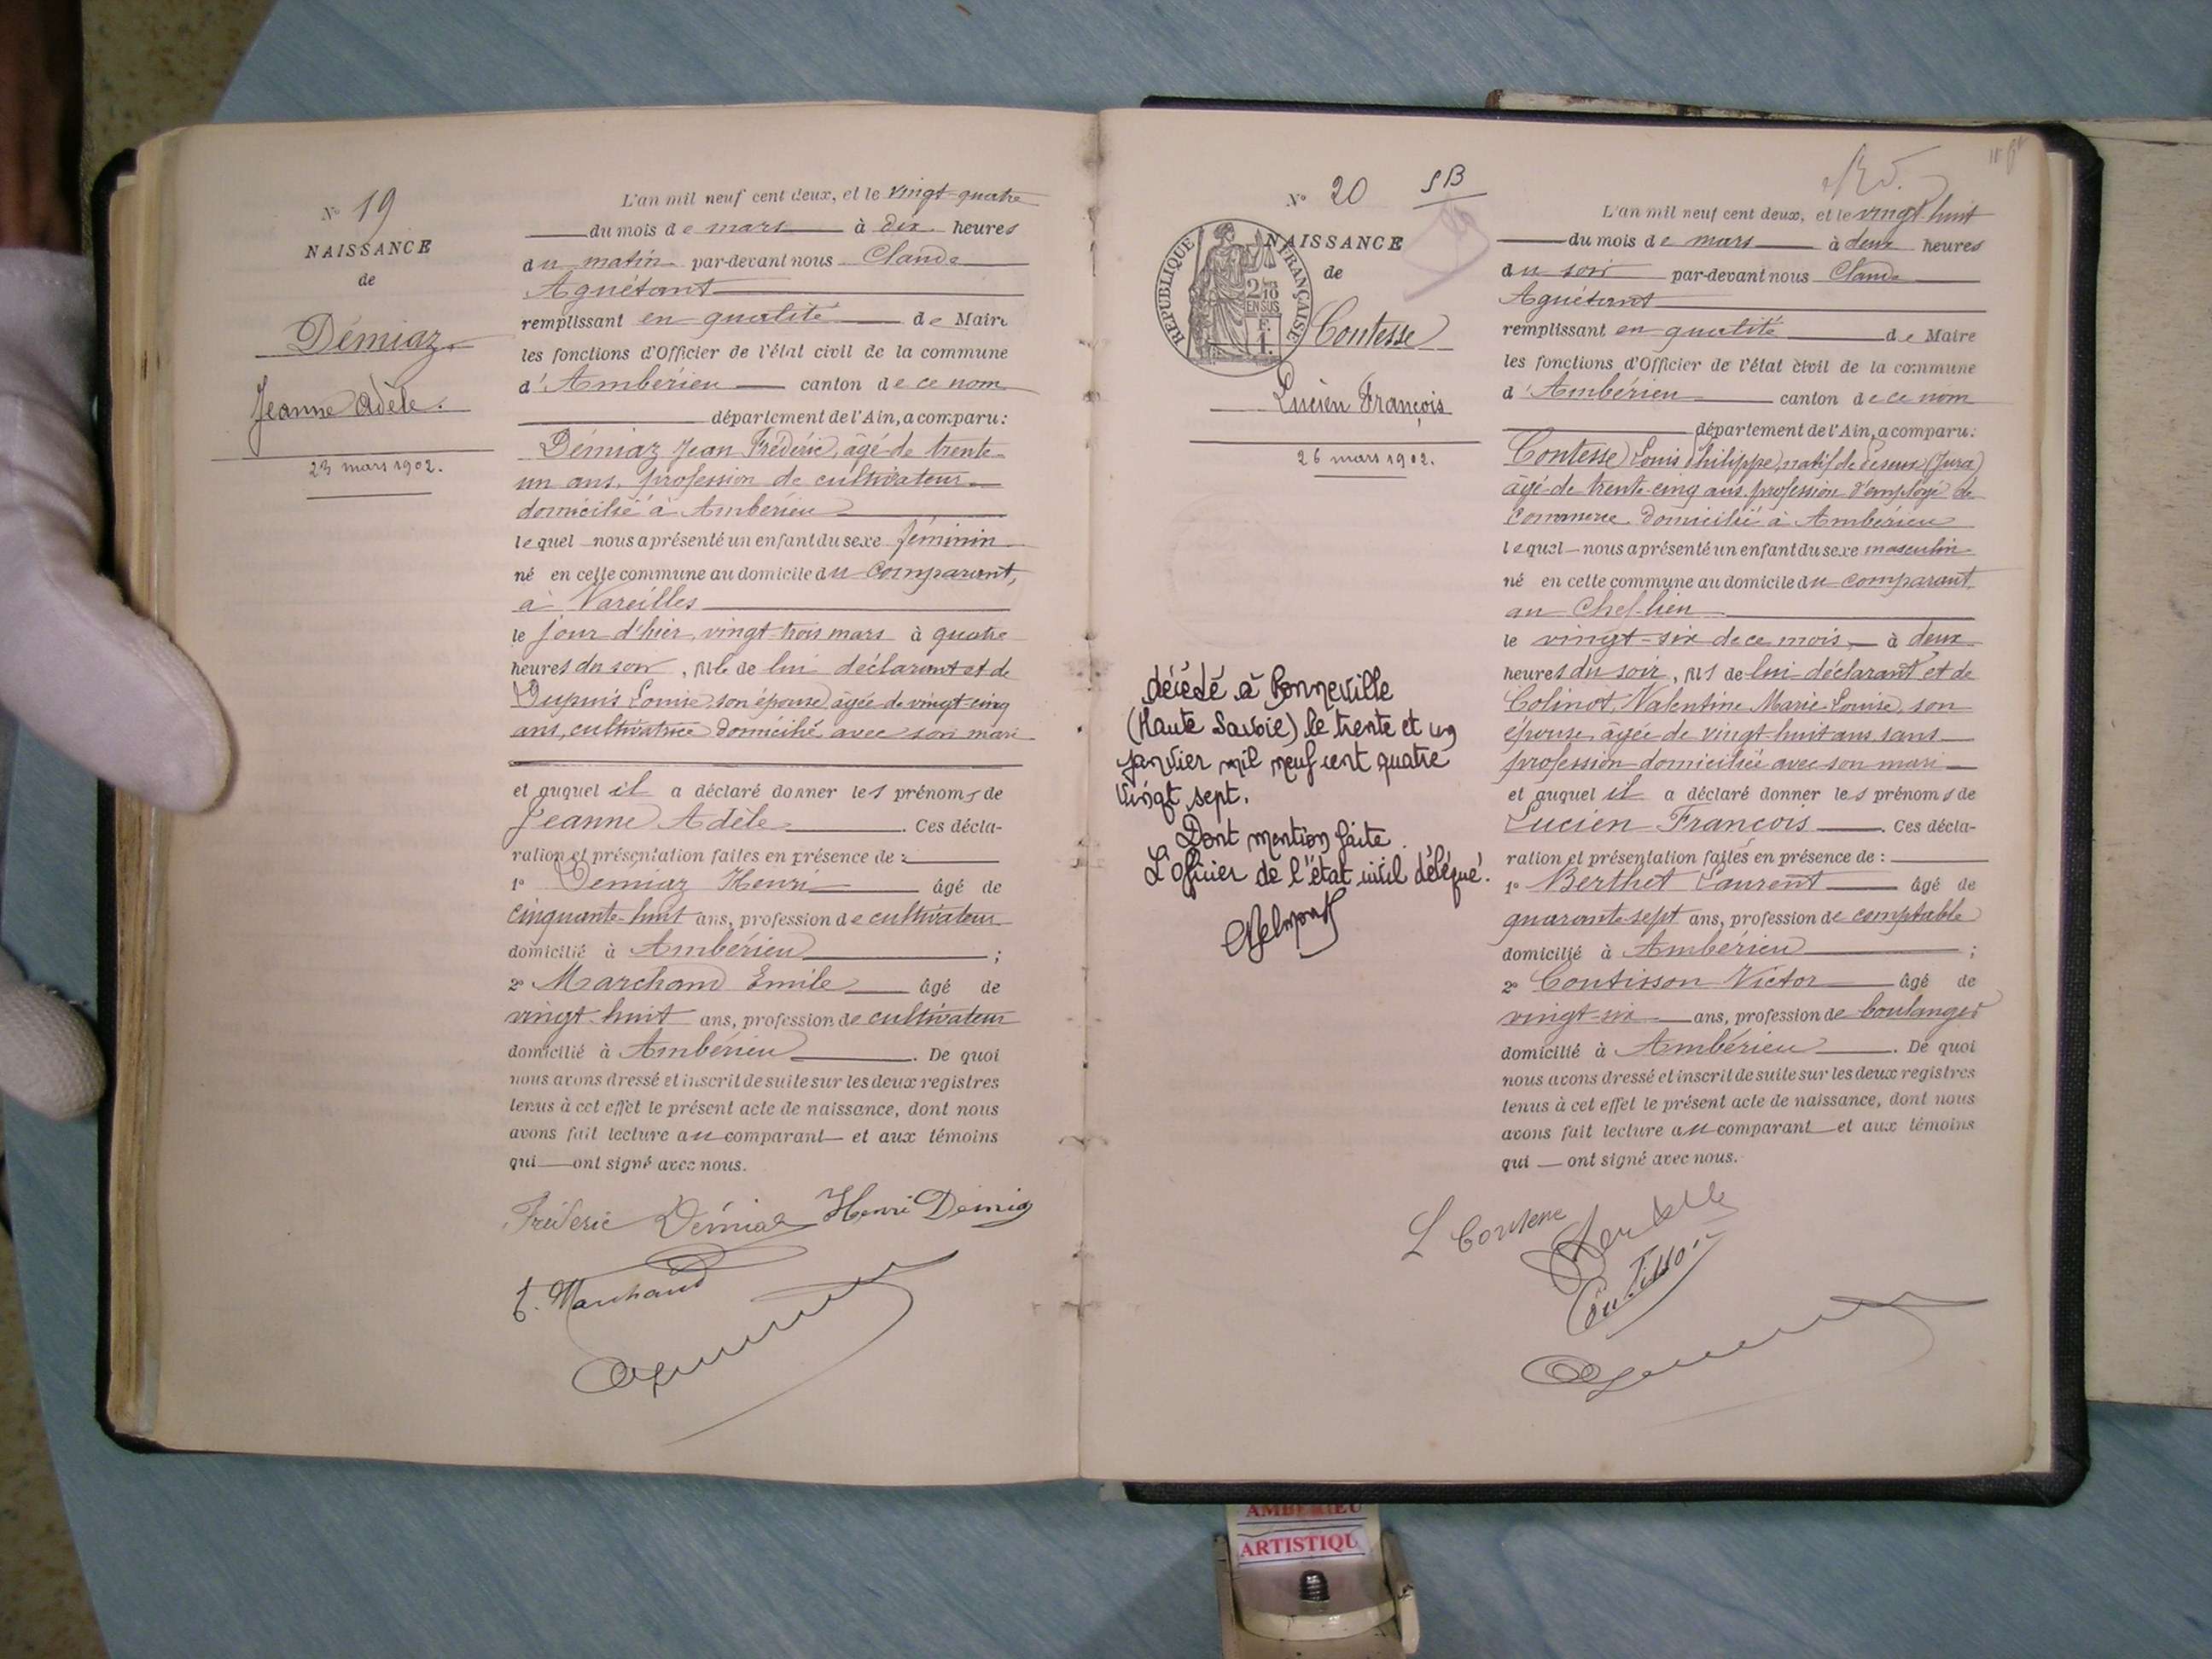 N° 19
NAISSANCE
de
Démiaz
Jeanne Adèle.
23 mars 1902.
L'an mil neuf cent deux, et le vingt-quatre
du mois de mars à dix heures
du matin par-devant nous Claude
Aguétant
remplissant en qualité de Maire
les fonctions d'Officier de l'état civil de la commune
d'Ambérieu canton de ce nom
département de l'Ain, a comparu:
Démiaz Jean Frédéric, âgé de trente-
un ans, profession de cultivateur
domicilié à Ambérieu
lequel nous a présenté un enfant du sexe féminin
né en cette commune au domicile du comparant,
à Vareilles
le jour d'hier, vingt-trois mars à quatre
heures du soir, fille de lui déclarant et de
Dupuis Louise, son épouse, âgée de vingt-cinq
ans, cultivatrice domicilié avec son mari
et auquel il a déclaré donner les prénoms de
Jeanne Adèle. Ces décla-
ration et présentation faites en présence de :
1° Démiaz Henri âgé de
cinquante-huit ans, profession de cultivateur
domicilié à Ambérieu ;
2° Marchand Emile âgé de
vingt-huit ans, profession de cultivateur
domicilié à Ambérieu. De quoi
nous avons dressé et inscrit de suite sur les deux registres
tenus à cet effet le présent acte de naissance, dont nous
avons fait lecture au comparant et aux témoins
qui ont signé avec nous.
Frédéric Démiaz Henri Démiaz
E. Marchand
N° 20
SB
REPUBLIQUE FRANÇAISE
2/10
EN SUS
F.
1.
NAISSANCE
de
Contesse
Lucien François
26 mars 1902.
décédé à Bonneville
(Haute Savoie) le trente et un
janvier mil neuf cent quatre
vingt sept.
Dont mention faite.
L'officier de l'état civil délégué.
L'an mil neuf cent deux, et le vingt-huit
du mois de mars à deux heures
du soir par-devant nous Claude
Aguétant
remplissant en qualité de Maire
les fonctions d'Officier de l'état civil de la commune
d'Ambérieu canton de ce nom
département de l'Ain, a comparu:
Contesse Louis Philippe, natif de (Jura)
âgé de trente-cinq ans, profession d'employé de
commerce domicilié à Ambérieu
lequel nous a présenté un enfant du sexe masculin
né en cette commune au domicile du comparant
au Chef-lieu
le vingt-six de ce mois, à deux
heures du soir, fils de lui déclarant et de
Colinot, Valentine Marie-Louise, son
épouse, âgée de vingt-huit ans, sans
profession domiciliée avec son mari
et auquel il a déclaré donner les prénoms de
Lucien François. Ces décla-
ration et présentation faites en présence de :
1° Berthet Laurent âgé de
quarante-sept ans, profession de comptable
domicilié à Ambérieu ;
2° Coutisson Victor âgé de
vingt-six ans, profession de boulanger
domicilié à Ambérieu. De quoi
nous avons dressé et inscrit de suite sur les deux registres
tenus à cet effet le présent acte de naissance, dont nous
avons fait lecture au comparant et aux témoins
qui ont signé avec nous.
L Contesse
Coutisson
AMBERIEU
ARTISTIQU